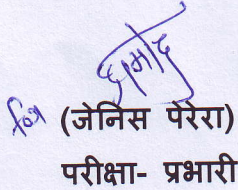 for (जेनिस पेरेरा)
परीक्षा- प्रभारी